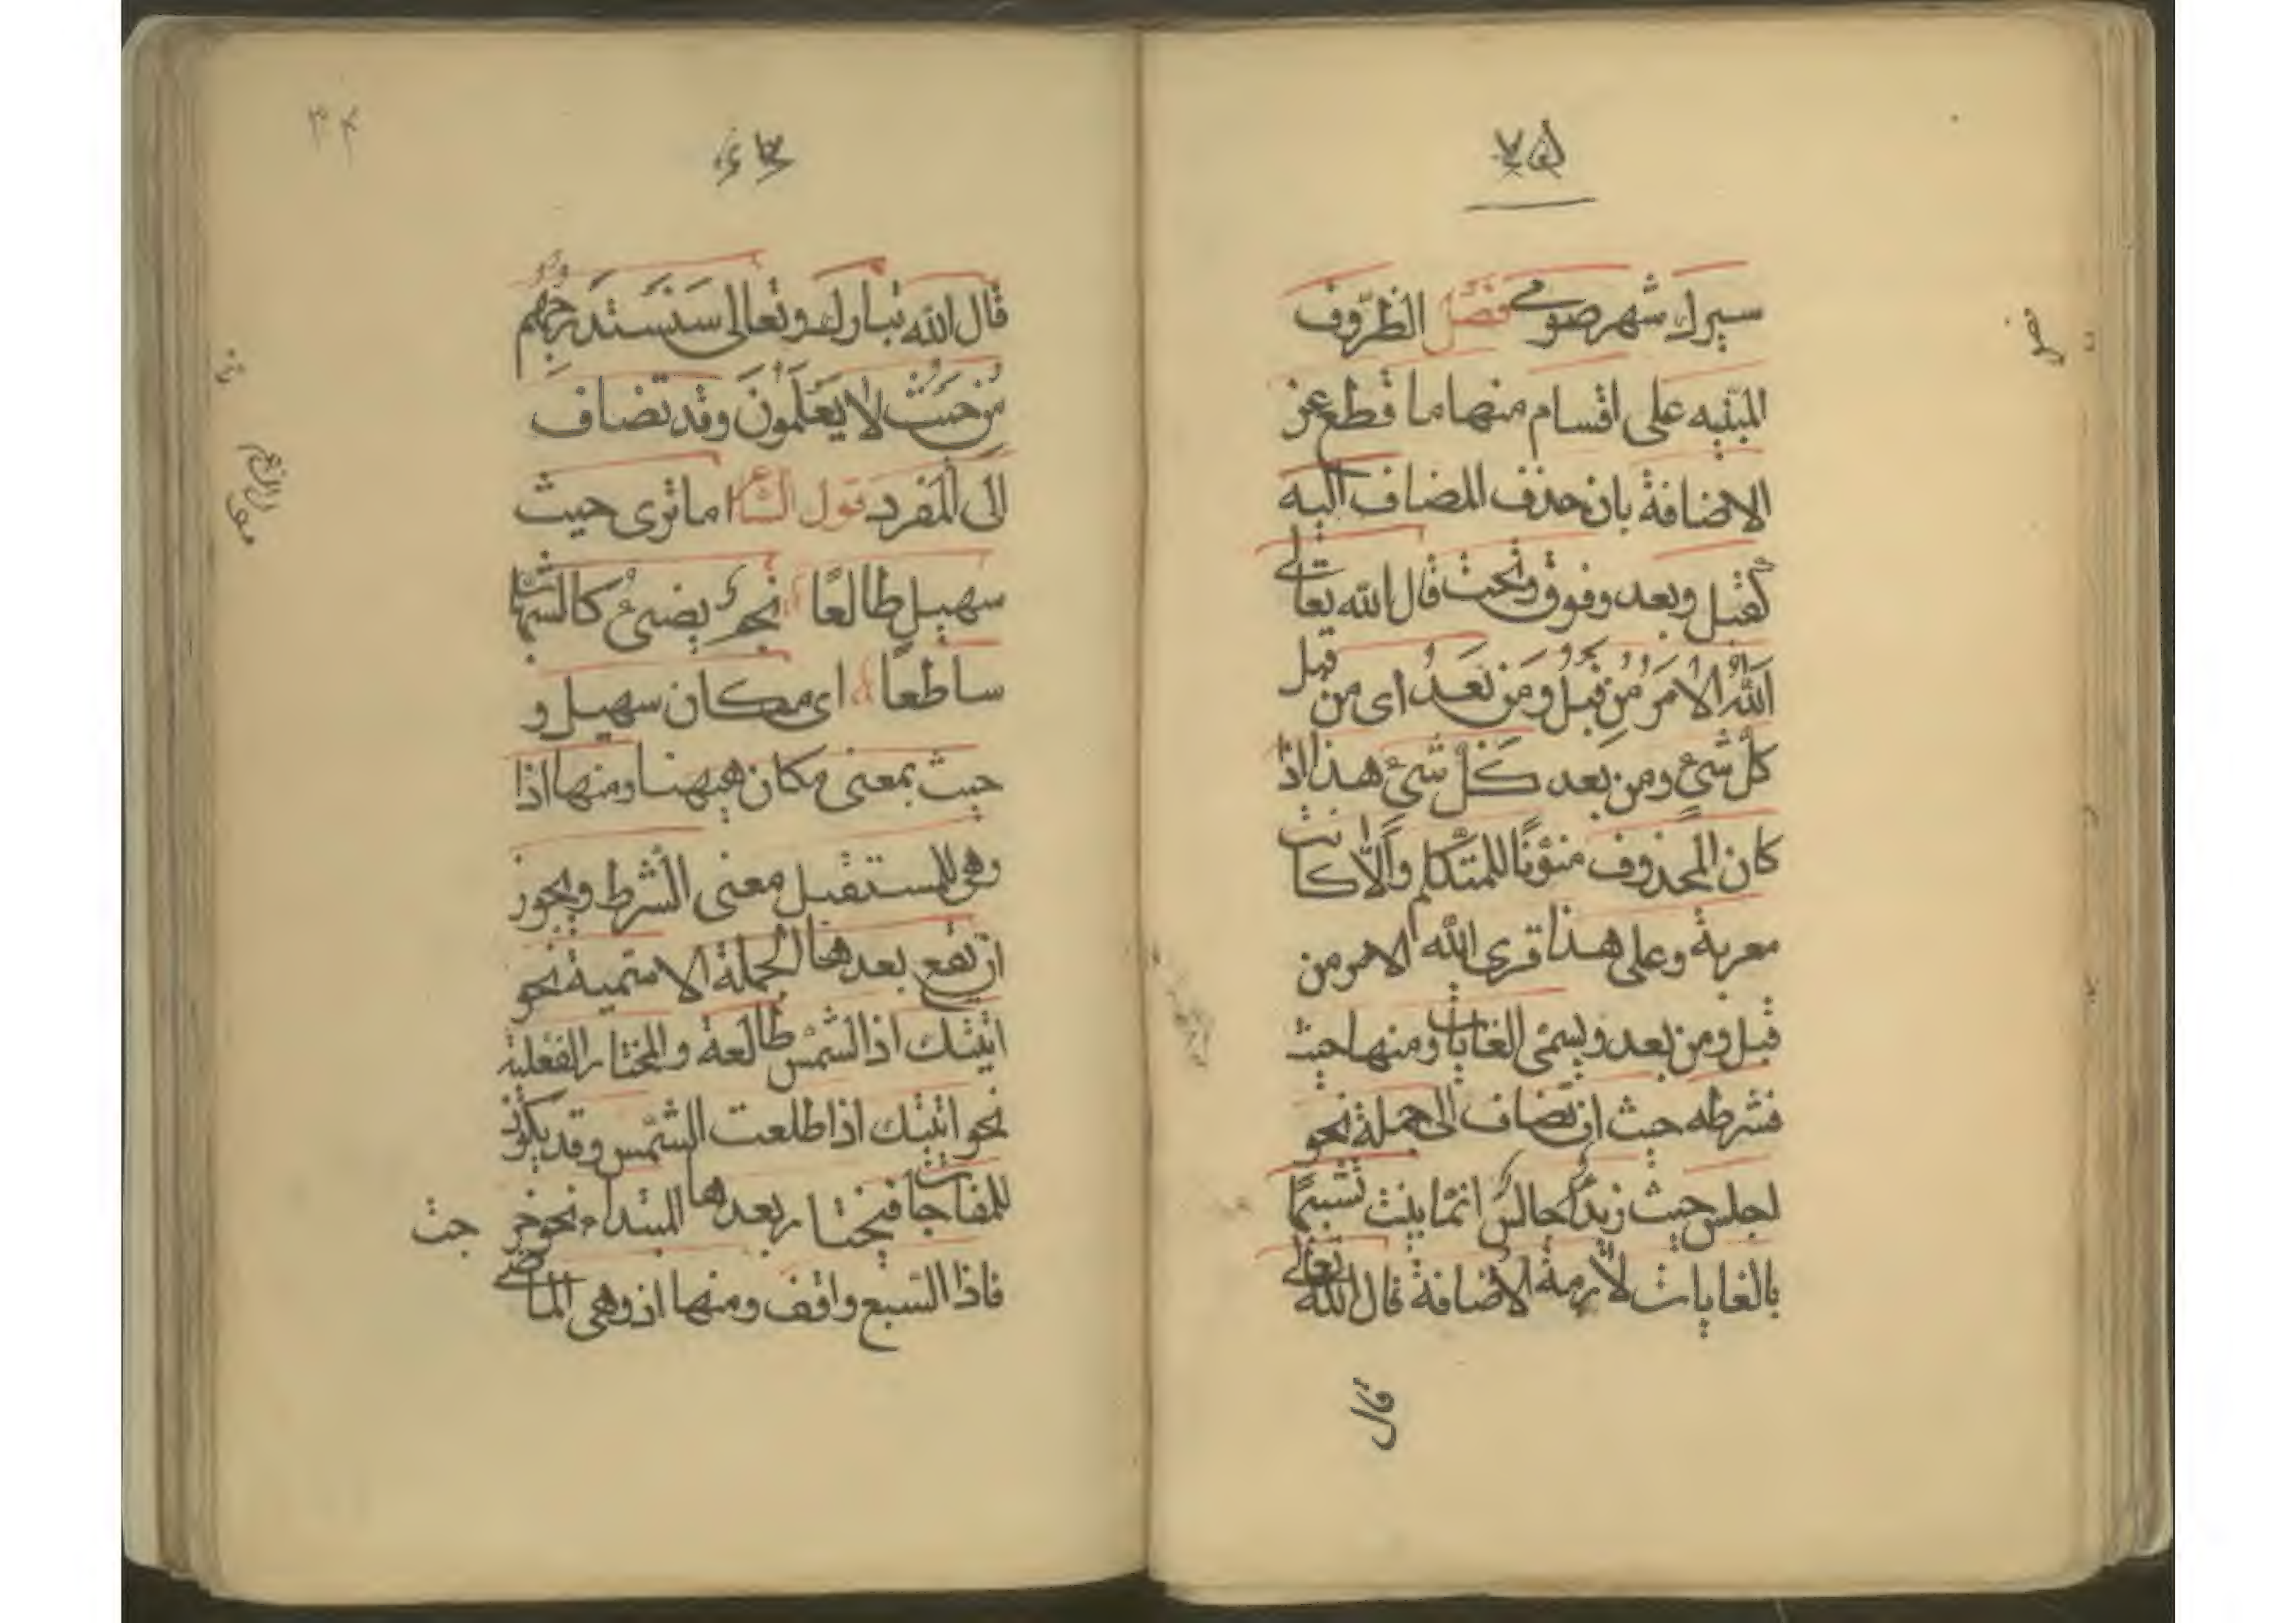 ٧٥
سيرك شهر صومى فصل الظّروف
المبنّيه على اقسام منها ما قطع عن
الاضافة بان حذف المضاف اليه
كقبل وبعد وفوق وتحت قال الله تعالى
لله الامر من قبل ومن بعد اى من قبل
كلّ شئ ومن بعد كلّ شئ هذا اذا
كان المحذوف منوّنًا للمتكلم والّا كانت
معربة وعلى هذا قرى لله الامر من
قبل ومن بعد ويسمّى الغايات ومنها حيث
فشرطه حيث ان تضاف الى جملة نحو
اجلس حيث زيد جالس انما بنيت تشبيهًا
بالغايات لازمة الاضافة قال الله تعالى
قال
٣٤
قال الله تبارك وتعالى سَنَسْتَدْرِجُهُم
مِنْ حَيْثُ لا يَعْلَمُونَ وقد تضاف
الى المفرد قول الشاعر اما ترى حيث
سهيل طالعًا نجم يضئ كالشهاب
ساطعًا اى مكان سهيل و
حيث بمعنى مكان هيهنا ومنها اذا
وهى للمستقبل معنى الشرط ويجوز
ان تقع بعدها الجملة الاسمية نحو
اتيتك اذا الشمس طالعة والمختار الفعلية
نحو اتيتك اذا طلعت الشمس وقد يكون
للمفاجات فيختار بعدها المبتداء نحو خرجت
فاذا السبع واقف ومنها اذ وهى الماضى